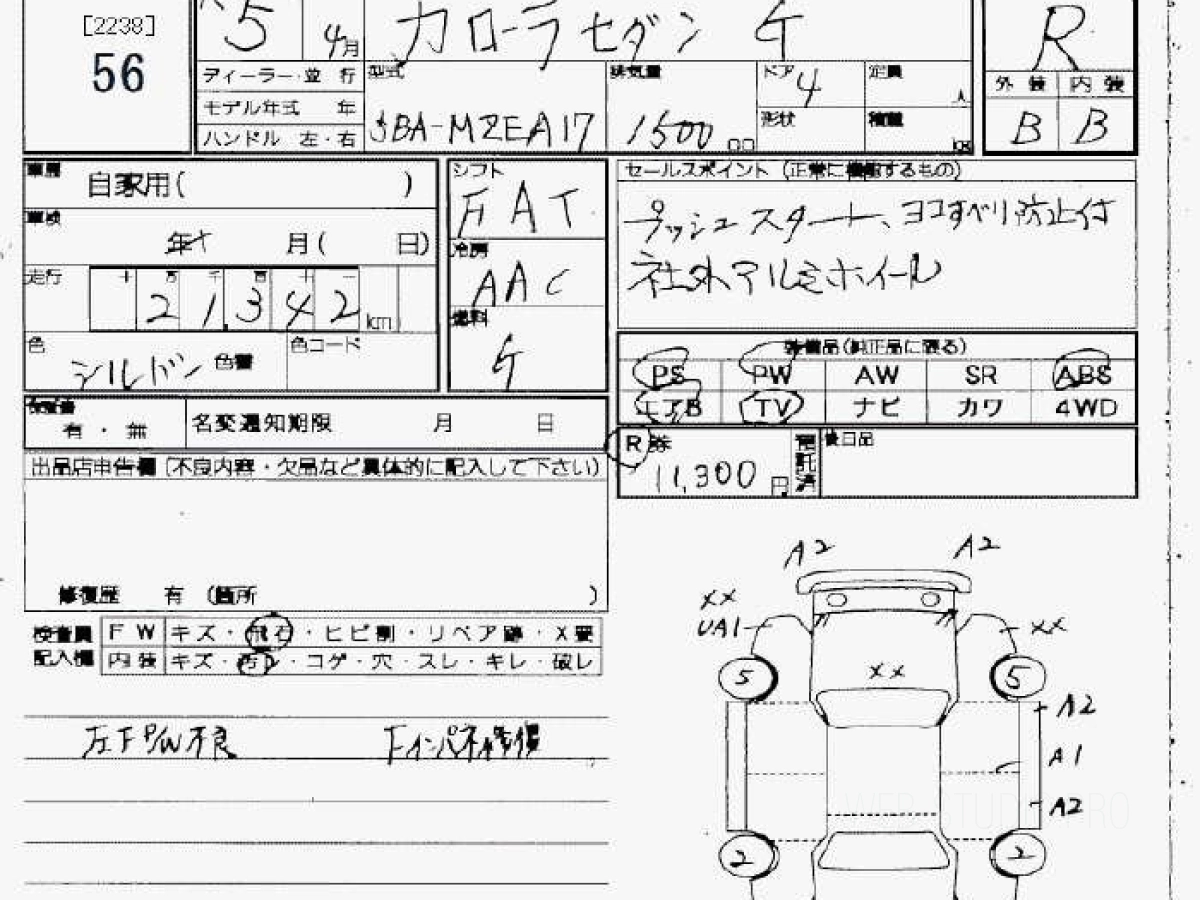 [2238]
56
5 4月 カローラセダン G
ディーラー・並行
モデル年式 年
ハンドル 左・右
型式
5BA-MZEA17
排気量
1500 cc
ドア 4
形状
定員 人
積載 kg
R
外装 内装
B B
車歴 自家用( )
車検 年 月( 日)
走行 十 万 千 百 十 一
21,342 km
色 シルバー 色替
色コード
シフト
FAT
冷房
AAC
燃料
G
セールスポイント (正常に機能するもの)
プッシュスタート、ヨコすべり防止付
社外アルミホイール
装備品(純正品に限る)
PS PW AW SR ABS
エアB TV ナビ カワ 4WD
R券 11,300円
預託済
後日品
保証書 有・無
名変通知期限 月 日
出品店申告欄(不良内容・欠品など具体的に記入して下さい)
修復歴 有 (箇所 )
検査員記入欄
FW キズ・飛石・ヒビ割・リペア跡・X要
内装 キズ・汚レ・コゲ・穴・スレ・キレ・破レ
左FP/W不良 Fインパネ修復
A2 A2
XX
UA1 XX
5 XX 5
A2
A1
A2
2 2